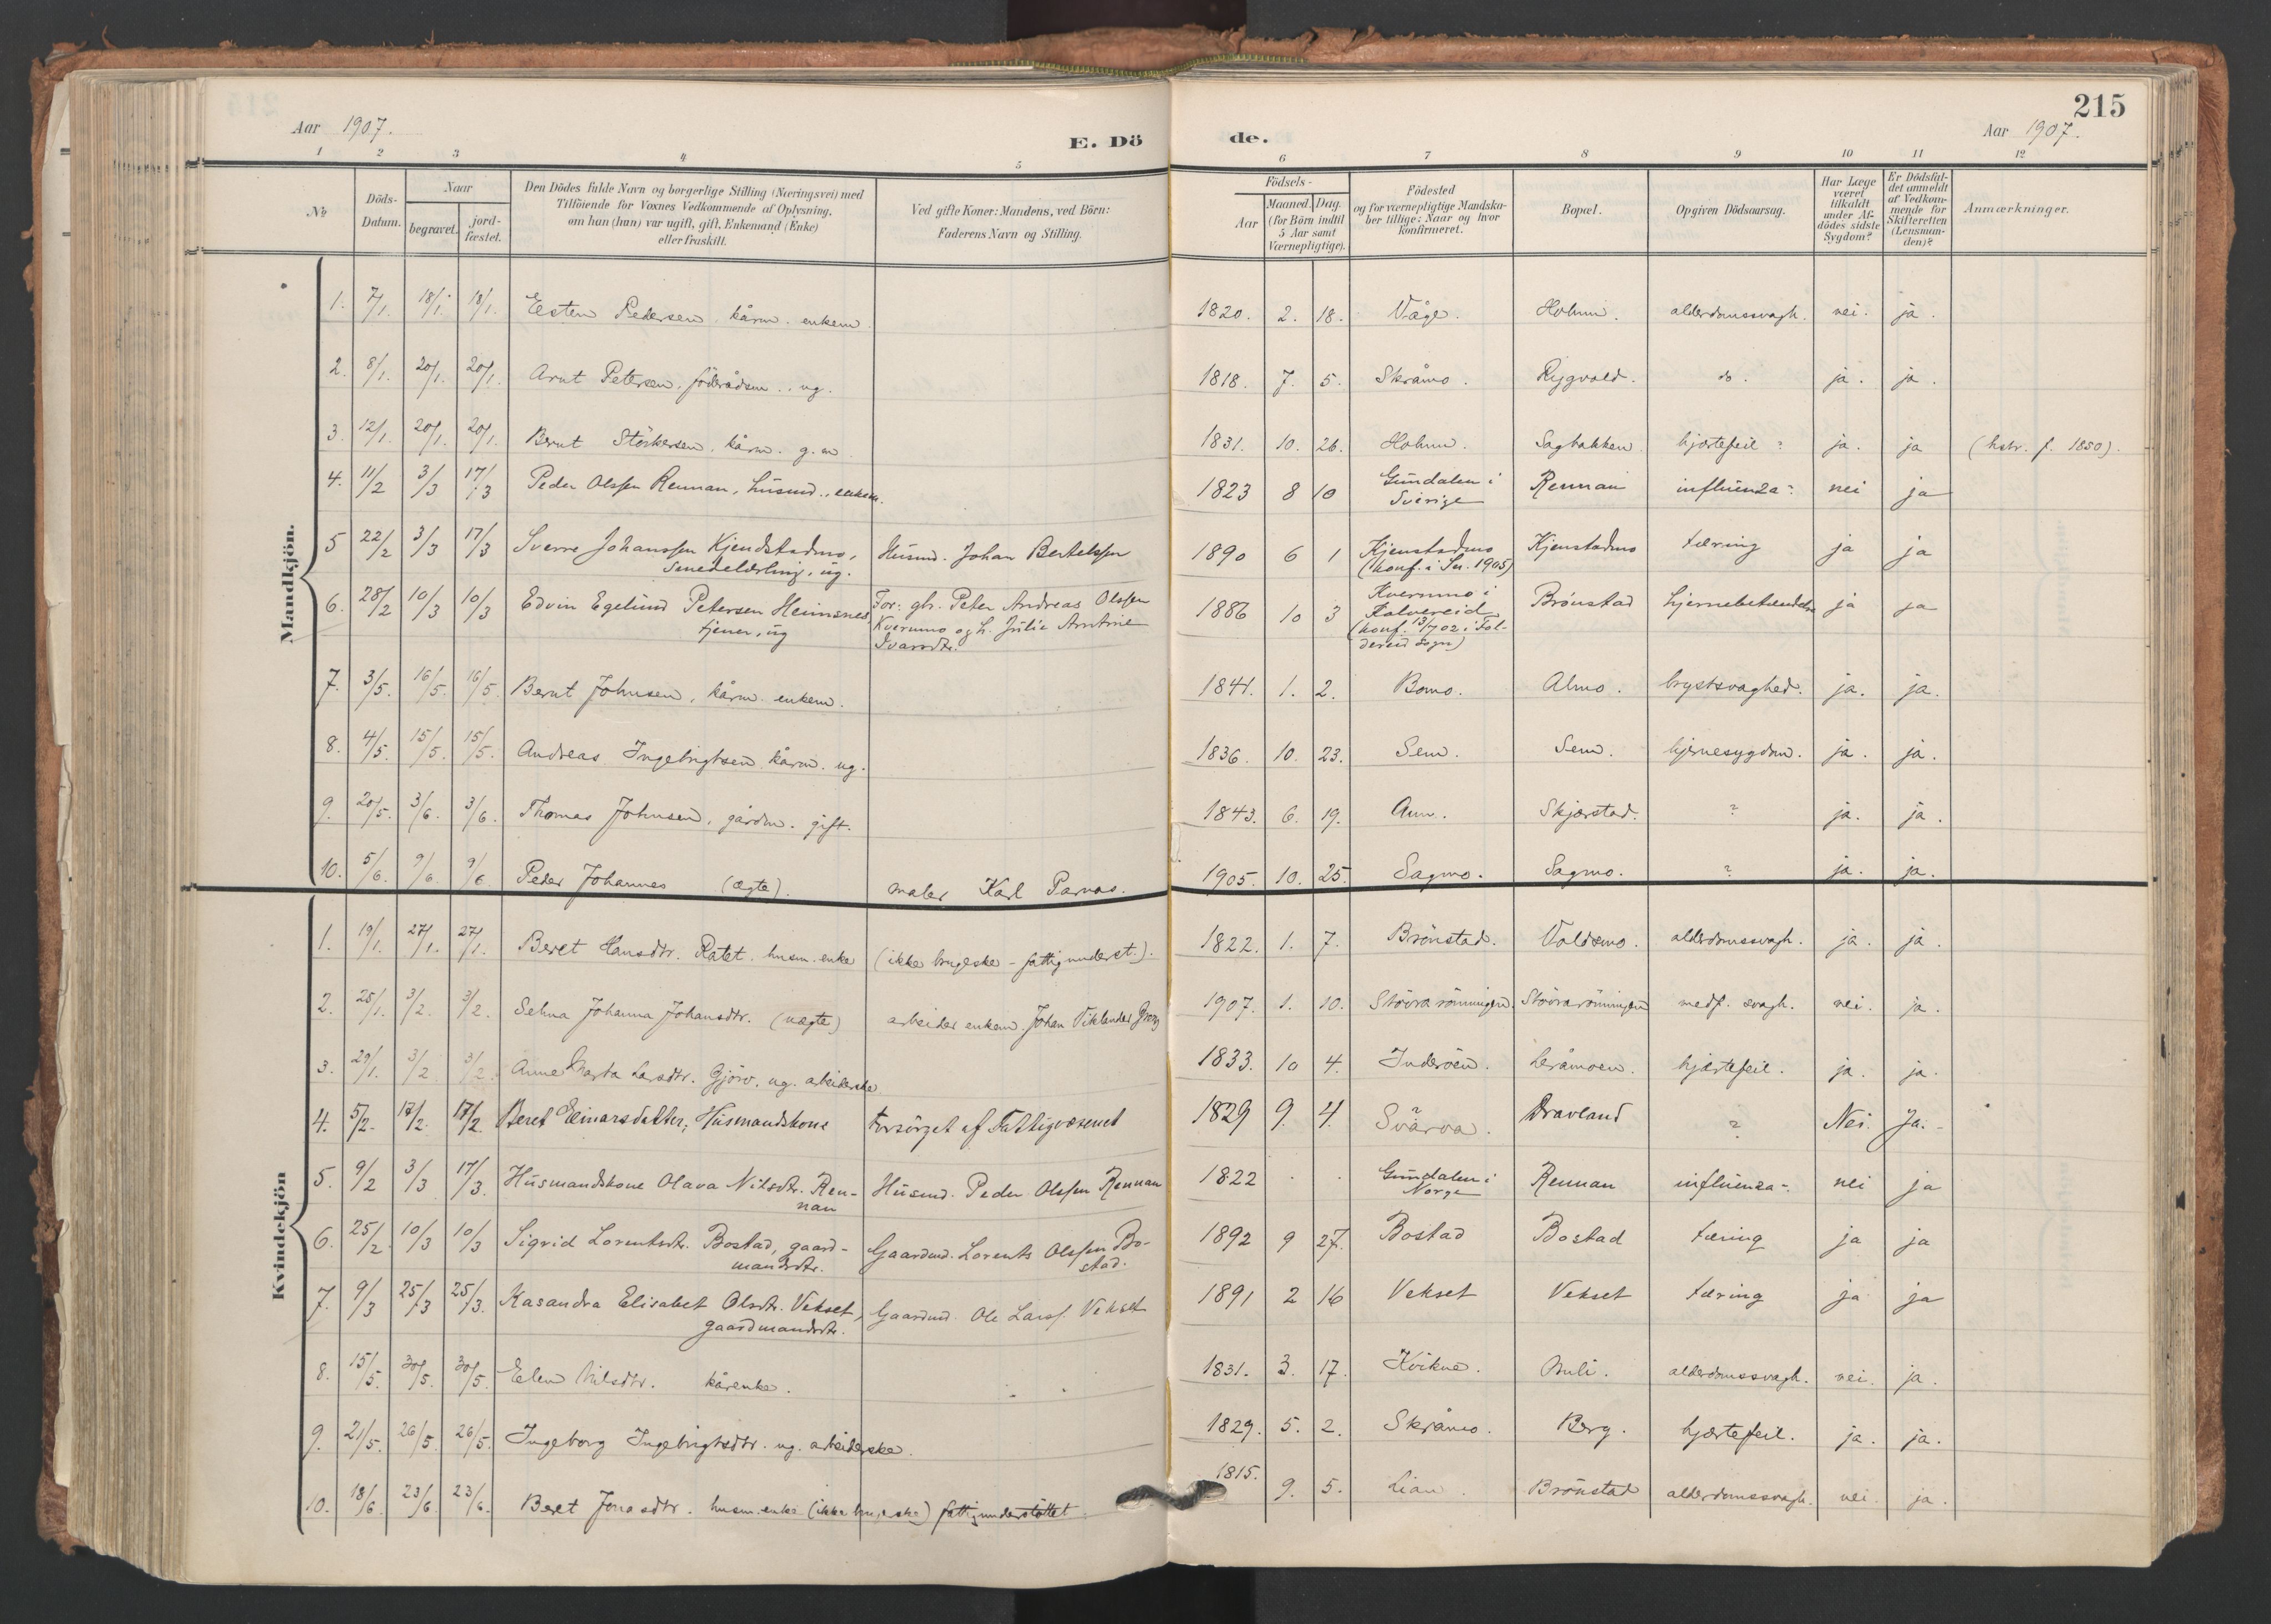 215
Aar 1907. E. Dö de. Aar 1907.
1 2 3 4 5 6 7 8 9 10 11 12
№ Döds-Datum. Naar begravet. jord-fæstet. Den Dödes fulde Navn og borgerlige Stilling (Næringsvei) med Tilföiende for Voxnes Vedkommende af Oplysning, om han (hun) var ugift, gift, Enkemand (Enke) eller fraskilt. Ved gifte Koner: Mandens, ved Börn: Faderens Navn og Stilling. Födsels- Aar Maaned. Dag. (for Börn indtil 5 Aar samt Værnepligtige). Födested og for værnepligtige Mandskaber tillige: Naar og hvor konfirmeret. Bopæl. Opgiven Dödsaarsag. Har Læge været tilkaldt under Afdödes sidste Sygdom? Er Dödsfaldet anmeldt af Vedkommende for Skifteretten (Lensmanden)? Anmærkninger.
Mandkjön.
1. 7/1. 18/1. 18/1. Esten Pedersen kårm. enkem. 1820. 2. 18. Våge. Holum. alderdomssvagh. nei. ja.
2. 8/1. 20/1. 20/1. Arnt Petersen, föderådsm., ug. 1818. 7. 5. Skråmo. Rygvold. do. ja. ja.
3. 12/1. 20/1. 20/1. Bernt Störkersen, kårm. g.m. 1831. 10. 26. Holum. Sagbakken hjertefeil? ja. ja (hstr. f. 1850).
4. 11/2 3/3 17/3 Peder Olssen Rennan, husmd., enkem. 1823 8 10 Gundalen i Sverige Rennan influenza? nei ja
5 22/2 3/3 17/3 Sverre Johanssen Kjendstadmo, smedelærling, ug. Husmd. Johan Bertelssen 1890 6 1 Kjenstadmo (konf. i Sn. 1905) Kjenstadmo tæring ja ja
6. 28/2 10/3 10/3 Edvin Egelund Petersen Heimsnes, tjener, ug For: gbr. Peter Andreas Olssen Kvernmo og h. Julie Arntine Ivarsdtr. 1886 10 3 Kvernmo i Kolvereid (konf. 13/7 02 i Foldereid Sogn) Brönstad hjernebetændelse ja ja
7. 3/5. 16/5. 16/5. Bernt Johnsen, kårm. enkem. 1841. 1. 2. Bomo. Almo. brystsvaghed. ja. ja.
8. 4/5. 15/5. 15/5. Andreas Ingebrigtsen kårm. ug. 1836. 10. 23. Sem. Sem. hjernesygdom. ja. ja.
9. 20/5. 3/6. 3/6. Thomas Johnsen, gårdm. gift. 1843. 6. 19. Aun. Skjærstad. ? ja. ja.
10. 5/6. 9/6. 9/6. Peder Johannes (ægte). maler Karl Parnas. 1905. 10. 25. Sagmo. Sagmo. ? ja. ja.
Kvindekjön
1. 19/1. 27/1. 27/1. Beret Hansdtr. Ratet. husm. enke (ikke brugeske - fattigunderst.). 1822. 1. 7. Brönstad. Voldsmo. alderdomssvagh. ja. ja.
2. 25/1. 3/2. 3/2. Selma Johanna Johansdtr. (uægte) arbeider enkem. Johan Viklander 1907. 1. 10. Stövrarönningen. Stövrarönningen medf. svagh. nei. ja.
3. 29/1. 3/2 3/2 Anne Marta Larsdtr. Gjörv. ug. arbeiderske 1833. 10 4. Inderöen. Leråmoen. hjertefeil. ja. ja.
4. 5/2. 17/2. 17/2. Beret Einarsdatter, Husmandskone Forsörget af Fattigvæsenet 1829 9. 4. Svärva? Dravland ? Nei. Ja.
5. 9/2 3/3 17/3. Husmandskone Olava Nilsdtr. Rennan Husmd. Peder Olssen Rennan 1822 . . Gundalen i Norge Rennan influenza? nei ja
6. 25/2 10/3 10/3 Sigrid Lorentsdtr. Bostad, gaardmandsdtr. Gaardmd. Lorents Olssen Bostad. 1892 9 27. Bostad Bostad tæring ja ja
7. 9/3 25/3 25/3. Kasandra Elisabet Olsdtr. Vekset, gaardmandsdtr. Gaardmd. Ole Larss. Vekset 1891 2 16 Vekset Vekset tæring ja ja
8. 15/5. 30/5. 30/5. Elen Nilsdtr. kårenke. 1831. 3. 17. Kvikne. alderdomssvagh. nei. ja.
9. 21/5. 26/5. 26/5. Ingeborg Ingebrigtsdtr. ug. arbeiderske. 1829. 5. 2. Skråmo. Berg. hjertefeil. ja. ja.
10. 18/6. 23/6. 23/6. Beret Jonasdtr. husm. enke (ikke brugeske) fattigunderstöttet. 1815. 9. 5. Lian. Brönstad alderdomssvagh. nei. ja.